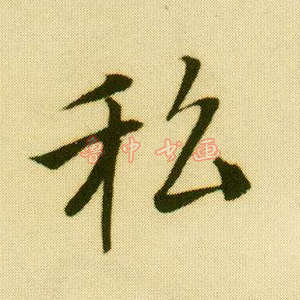 私
鲁中书画